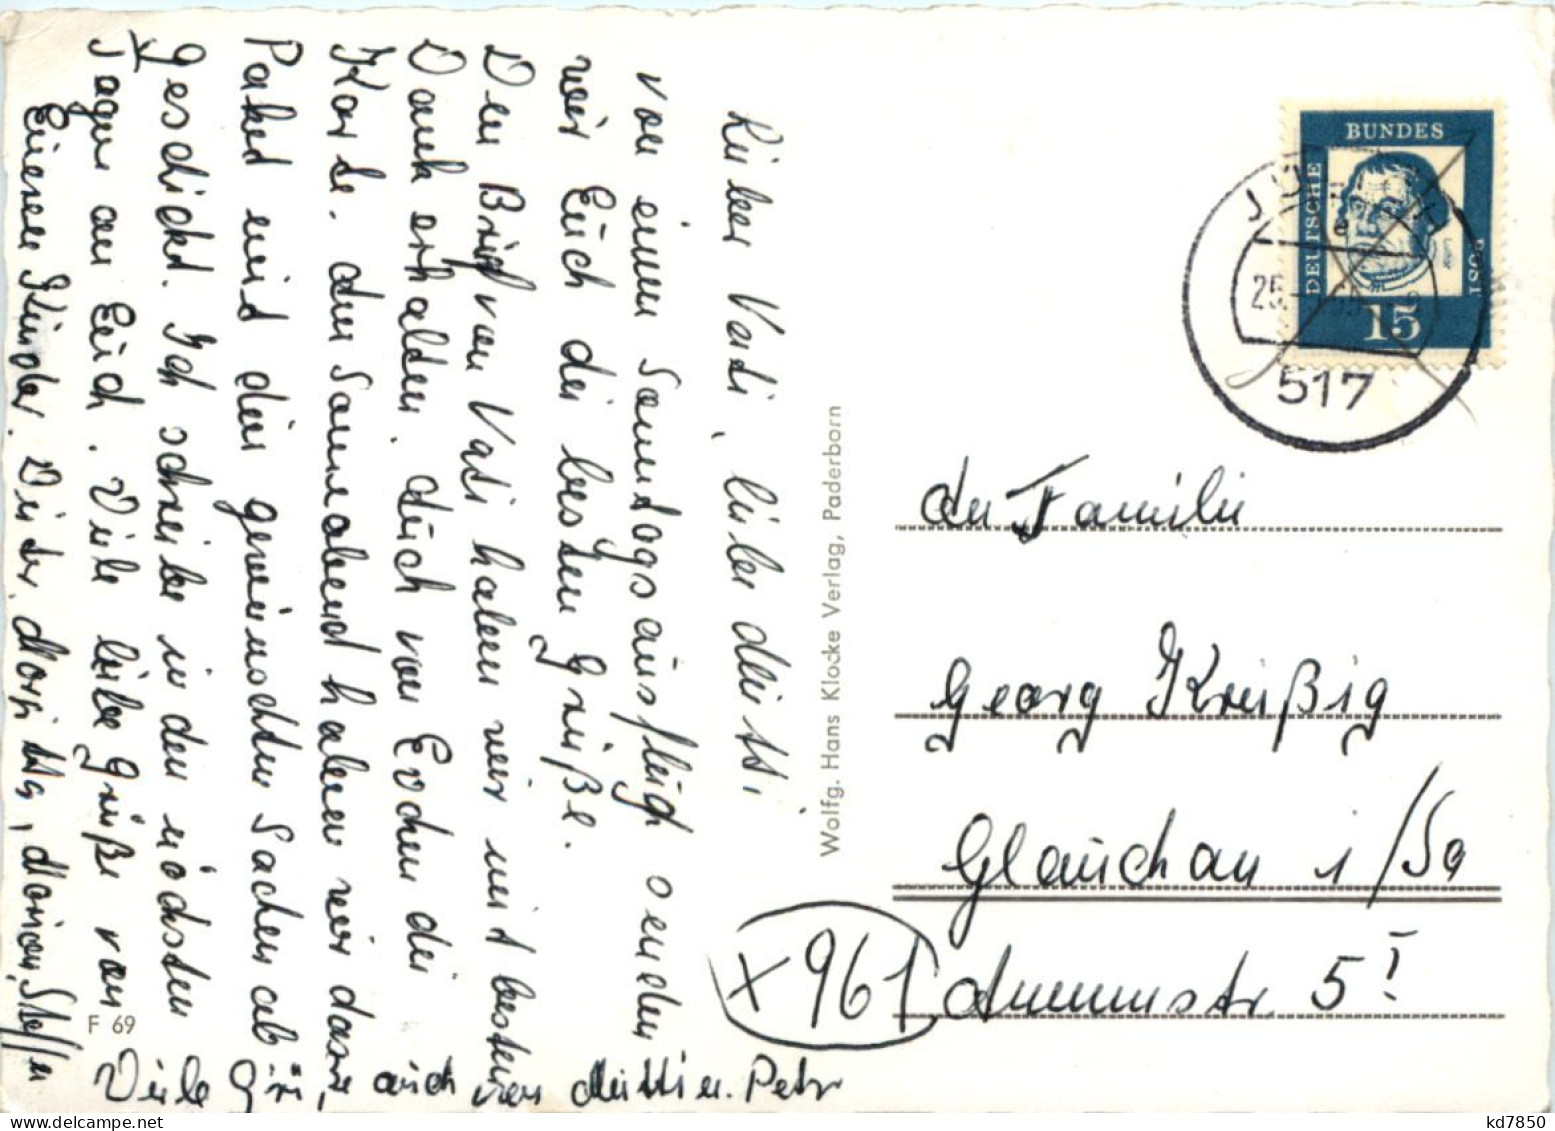 Lieber Vati, liebe Mutti,
von einem Sonntagsausflug senden
wir Euch die besten Grüße.
Den Brief von Vati haben wir mit besten
Dank erhalten, auch von Euch die
Karte. Am Sonnabend haben wir das
Paket mit den gewünschten Sachen ab-
geschickt. Ich schreibe in den nächsten
Tagen an Euch. Viele liebe Grüße von
Eueren Kinder Dieter, Steffen
Viele Grüße, auch von Mutti u. Peter
F 69
Wolfg. Hans Klocke Verlag, Paderborn
DEUTSCHE
BUNDES
POST
15
517
Familie
Georg Kreißig
Glauchau i/Sa
5 I
x 961
kd7850